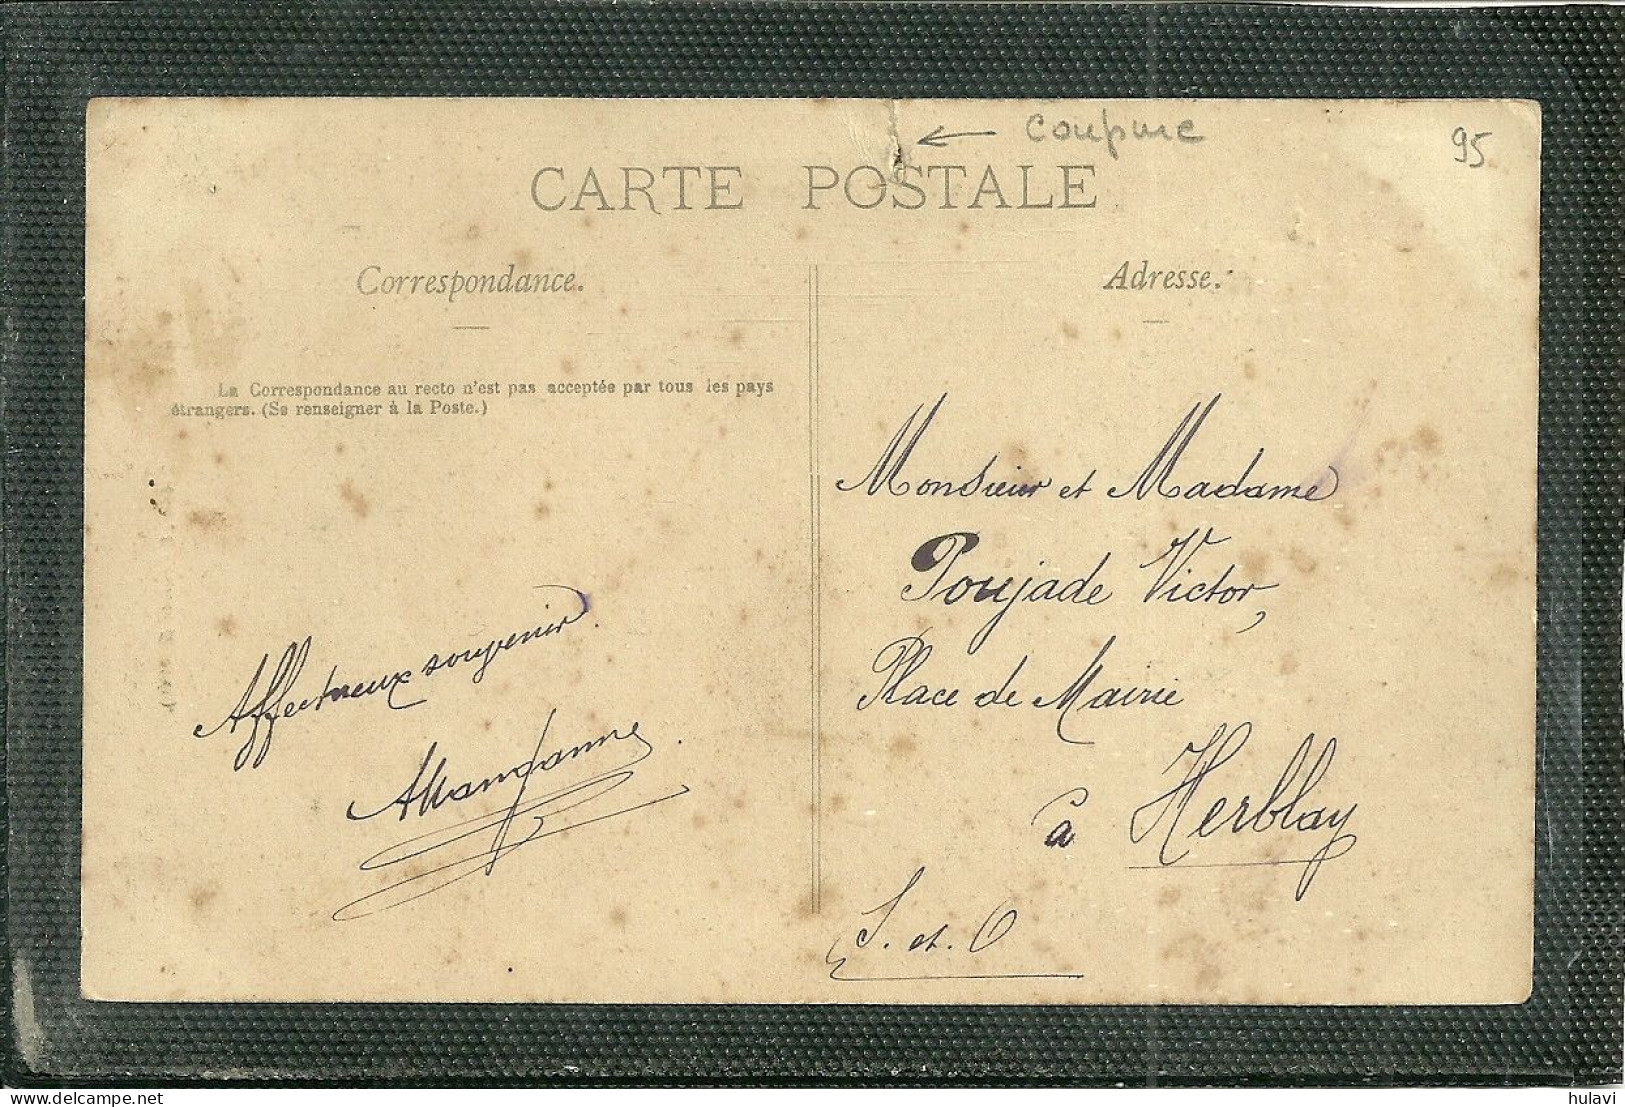 coupure
95
CARTE POSTALE
Correspondance.
Adresse.
La Correspondance au recto n'est pas acceptée par tous les pays
étrangers. (Se renseigner à la Poste.)
Affectueux souvenir.
Monsieur et Madame
Poujade Victor,
Place de Mairie
à Herblay
S. et. O
delcampe.net
hulavi